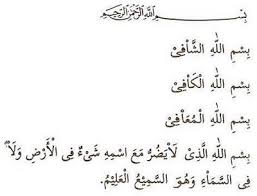 بِسْمِ اللهِ الرَّحْمٰنِ الرَّحِيْمِ
بِسْمِ اللهِ الشَّافِيْ
بِسْمِ اللهِ الْكَافِيْ
بِسْمِ اللهِ الْمُعَافِيْ
بِسْمِ اللهِ الَّذِيْ لَايَضُرُّ مَعَ اسْمِهِ شَيْءٌ فِى الْأَرْضِ وَلَا
فِى السَّمَاءِ وَهُوَ السَّمِيْعُ الْعَلِيْمُ.